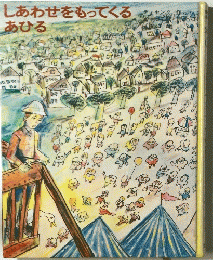 しあわせをもってくる
あひる